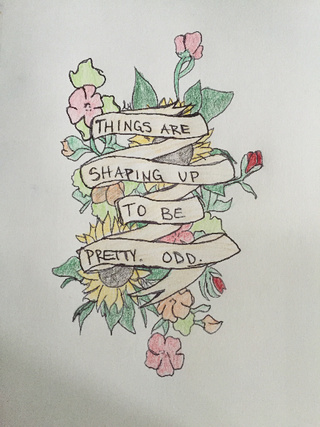 THINGS ARE
SHAPING UP
TO BE
PRETTY. ODD.